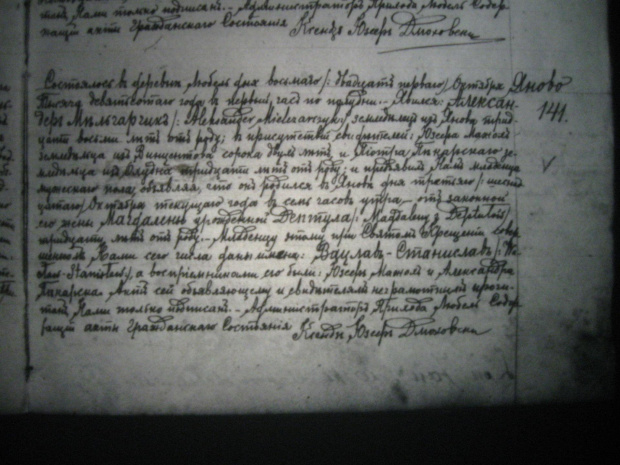 тей Нами только подписан. - Администратор Прихода Любель Содер
жащий акты Гражданского Состояния Ксендз Юзеф Дмоховски
Яново
141.
Состоялось в деревне Любель дня восьмаго /: двадцать перваго / Октября
тысяча девятсотаго года в первый час по полудни. - Явился: Алексан-
дер Мельгарчик /: Aleksander Mielcarczyk / земледелец из Янова трид
цати восьми лет от роду; в присутствии свидетелей: Юзефа Мажол
земледельца из сорока двух лет, и Піотра Пекарскаго зе
мледельца из тридцати лет от роду; и предъявил Нам младенца
мужескаго пола, объявляя, что он родился в Янове дня третяго / шест
цатаго / Октября текущаго года в семь часов утра, от законной
его жены Магдалены урожденной Дептула /: Magdaleny z Deptułów /
тридцати лет от роду. - Младенцу этому при Святом Крещении совер
шенном Нами сего числа дано имена: Вацлав-Станислав /: Wa
cław-Stanisław /, а восприемниками его были: Юзеф Мажол и Александра
Пекарска Акт сей объявляющему и свидетелям неграмотным прочи
тан Нами только подписан. - Администратор Прихода Любель Содер
жащий акты Гражданского Состояния Ксендз Юзеф Дмоховски